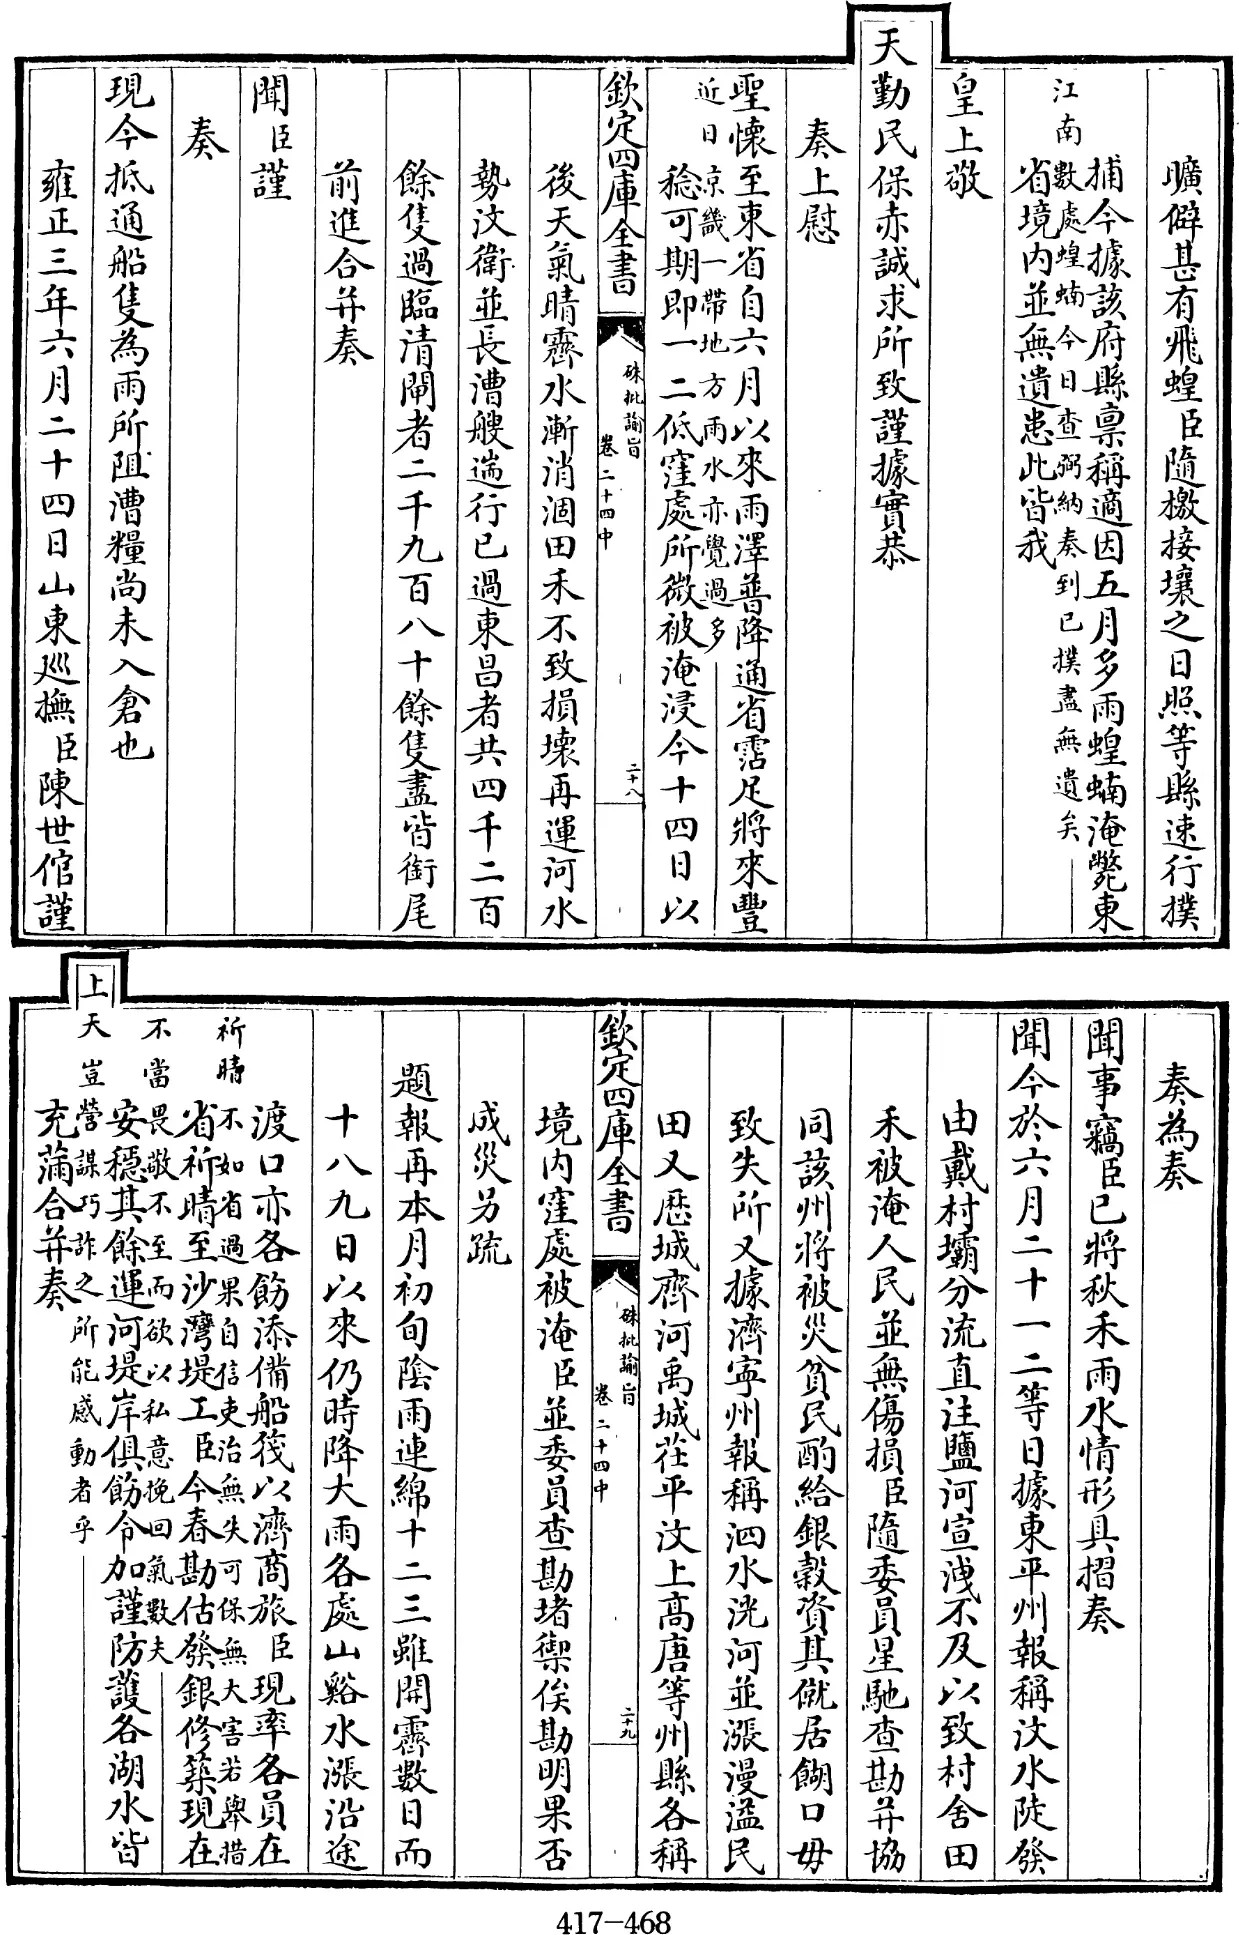 曠僻甚有飛蝗臣隨檄接壤之日照等縣速行撲
捕今據該府縣稟稱適因五月多雨蝗蝻淹斃東
江南數處蝗蝻今日查弼納奏到已撲盡無遺矣
省境内並無遺患此皆我
皇上敬
天勤民保赤誠求所致謹據實恭
奏上慰
聖懷至東省自六月以來雨澤普降通省霑足將來豐
近日京畿一帶地方雨水亦覺過多
稔可期即一二低窪處所微被淹浸今十四日以
欽定四庫全書
硃批諭旨
卷二十四中
二十八
後天氣晴霽水漸消涸田禾不致損壞再運河水
勢汶衛並長漕艘遄行已過東昌者共四千二百
餘隻過臨清閘者二千九百八十餘隻盡皆銜尾
前進合并奏
聞臣謹
奏
現今抵通船隻為雨所阻漕糧尚未入倉也
雍正三年六月二十四日山東巡撫臣陳世倌謹
奏為奏
聞事竊臣已將秋禾雨水情形具摺奏
聞今於六月二十一二等日據東平州報稱汶水陡發
由戴村壩分流直注鹽河宣洩不及以致村舍田
禾被淹人民並無傷損臣隨委員星馳查勘并協
同該州將被災貧民酌給銀榖資其僦居餬口毋
致失所又據濟寧州報稱泗水洸河並漲漫溢民
田又歷城齊河禹城茌平汶上高唐等州縣各稱
欽定四庫全書
硃批諭旨
卷二十四中
二十九
境内窪處被淹臣並委員查勘堵禦俟勘明果否
成災另疏
題報再本月初旬陰雨連綿十二三雖開霽數日而
十八九日以來仍時降大雨各處山谿水漲沿途
渡口亦各飭添備船筏以濟商旅臣現率各員在
祈晴不如省過果自信吏治無失可保無大害若舉措
省祈晴至沙灣堤工臣今春勘估發銀修築現在
不當畏敬不至而欲以私意挽回氣數夫
安穩其餘運河堤岸俱飭令加謹防護各湖水皆
上天豈營謀巧詐之所能感動者乎
充滿合并奏
417-468